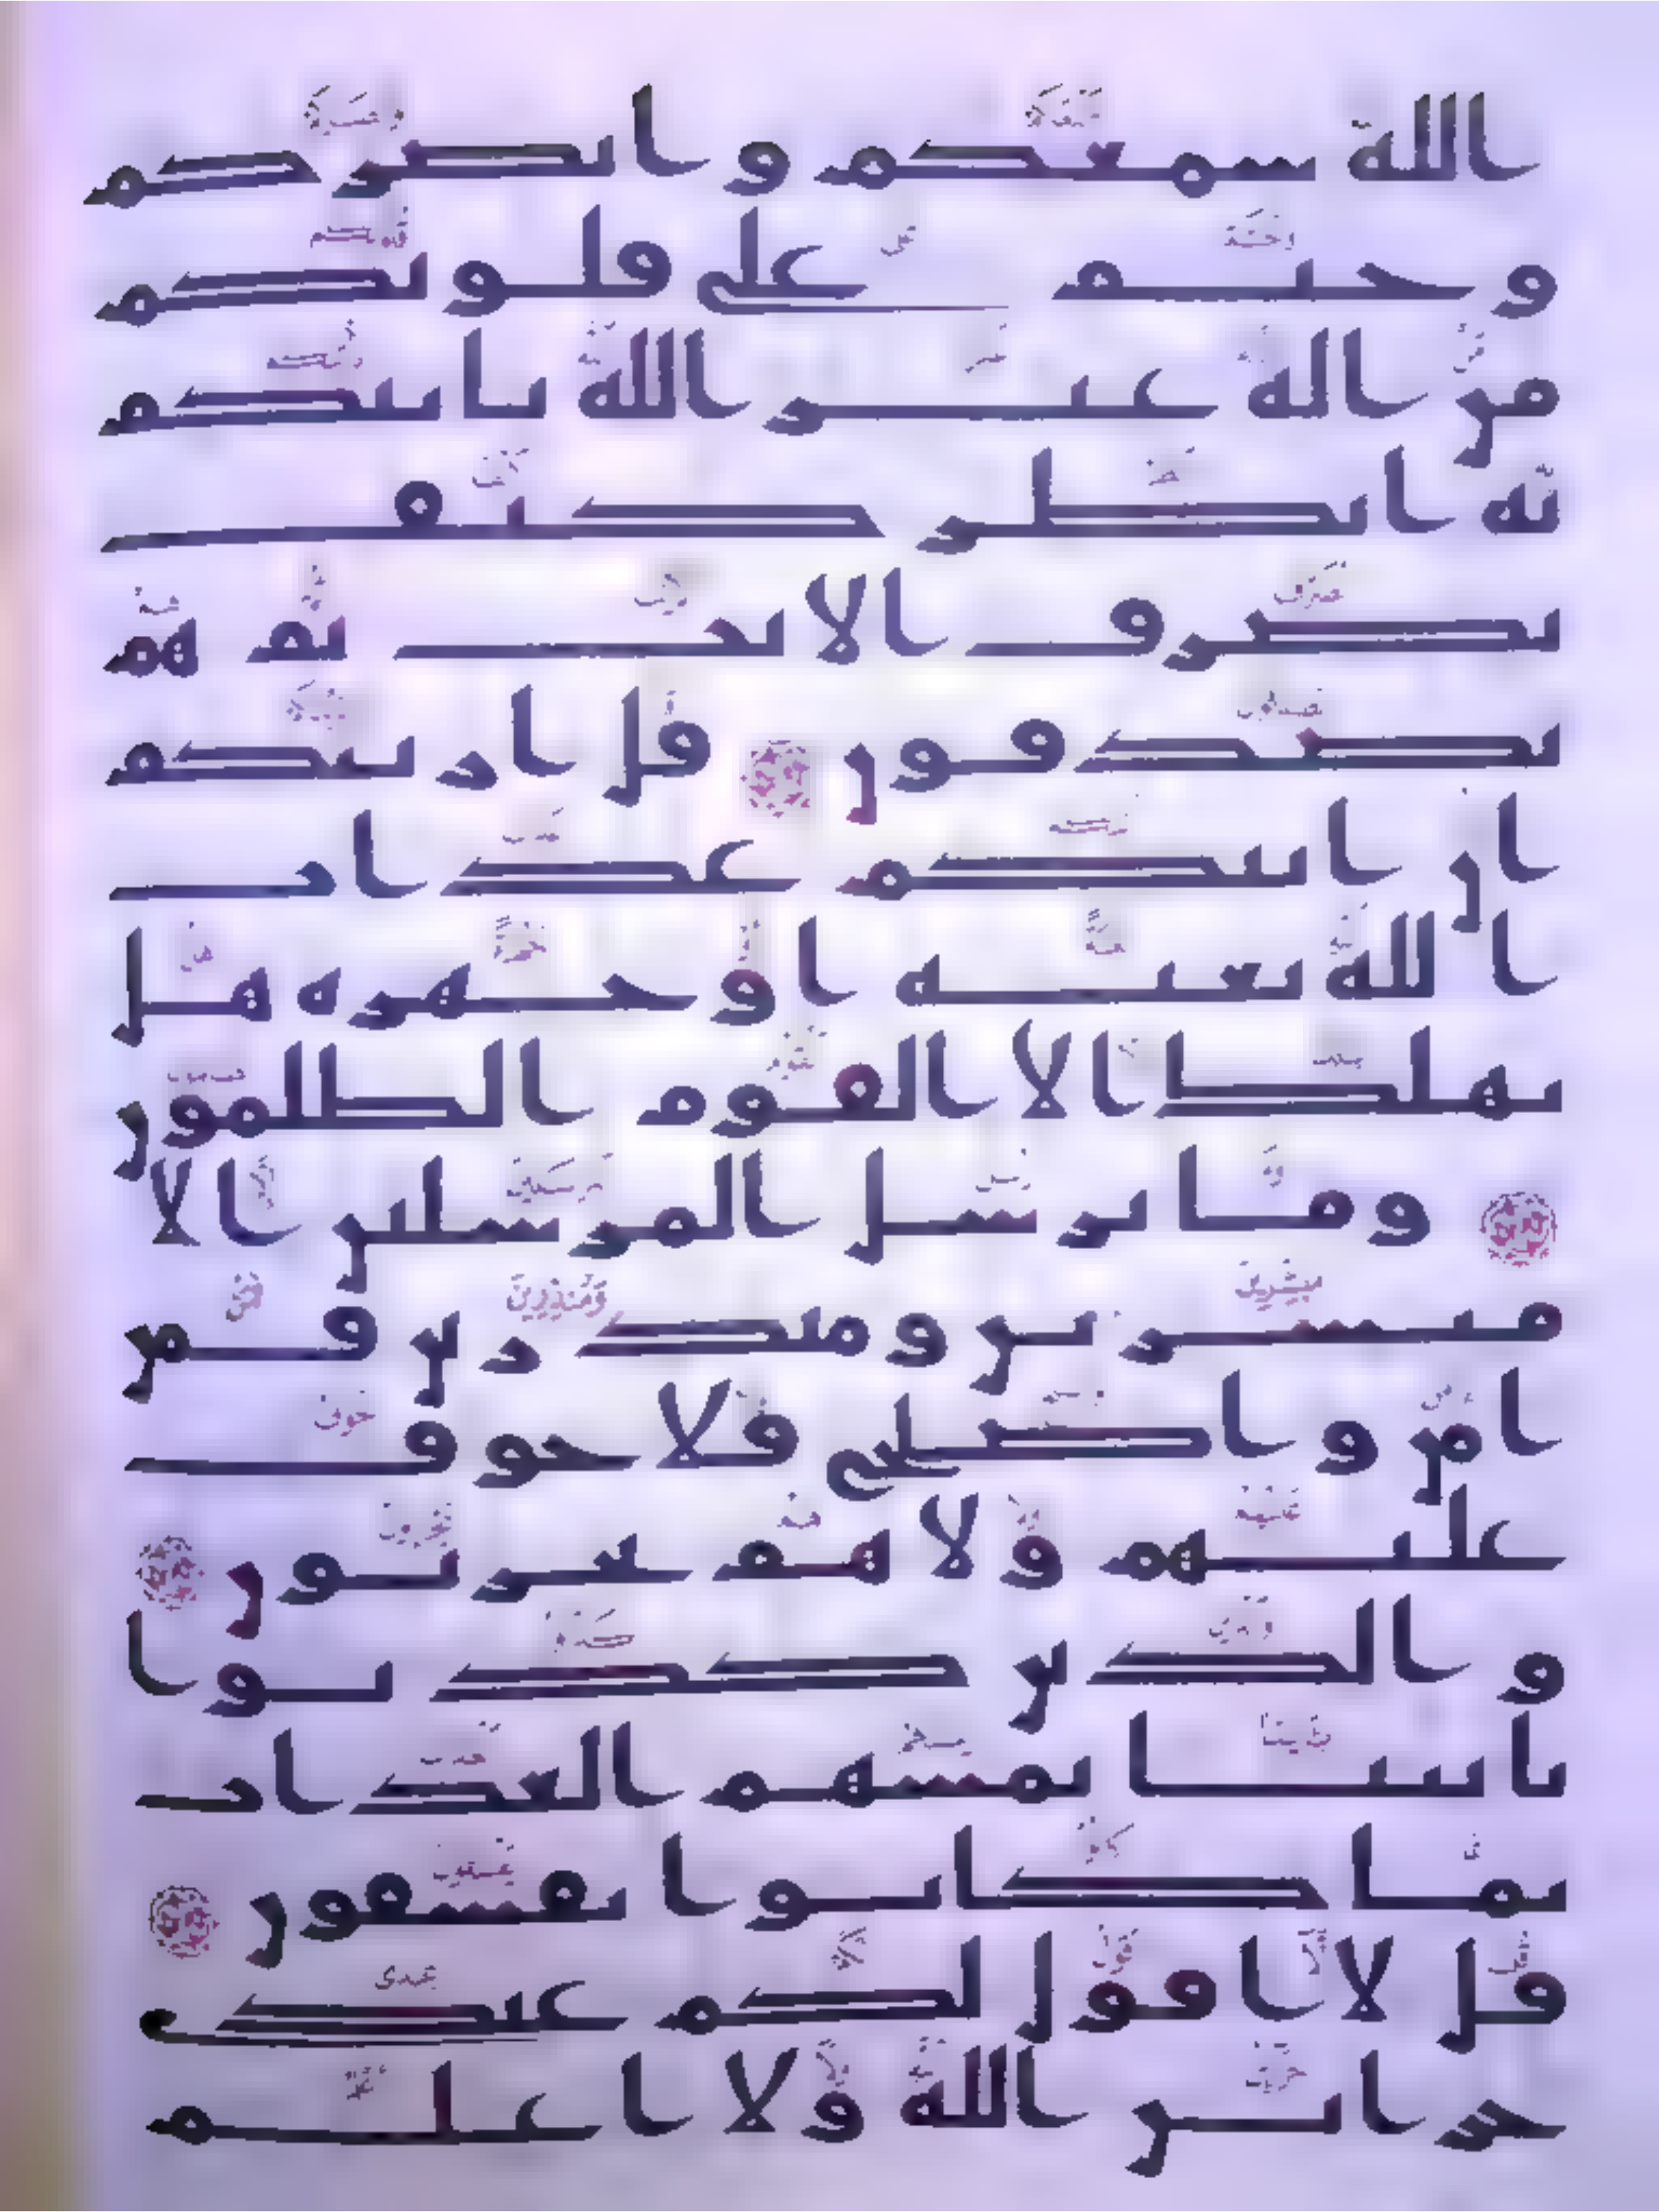 الله سمعكم و ابصركم
و ختم على قلوبكم
من اله غير الله ياتيكم
به انظر كيف
نصرف الايت ثم هم
يصدفون قل اريتكم
ان اتيكم عذاب
الله بغتة او جهرة هل
يهلك الا القوم الظلمون
وما نرسل المرسلين الا
مبشرين ومنذرين فمن
امن و اصلح فلا خوف
عليهم ولا هم يحزنون
و الذين كذبوا
بايتنا يمسهم العذاب
بما كانوا يفسقون
قل لا اقول لكم عندي
خزاين الله ولا اعلم